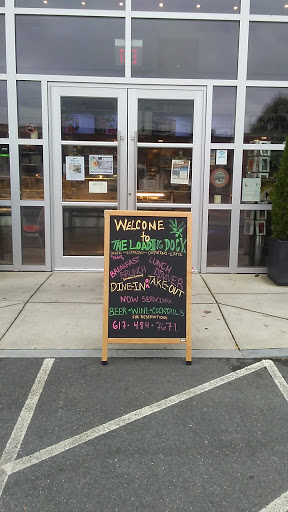 EXIT
WELCOME
to
THE LOADING DOCK
COFFEE - ESPRESSO - CAPPUCCINO - LATTE
BREAKFAST LUNCH
BRUNCH DINNER
DINE-IN & TAKE-OUT
NOW SERVING
BEER - WINE - COCKTAILS
FOR RESERVATIONS
617-484-7671